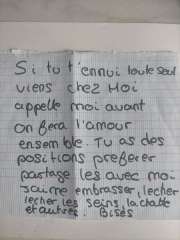 Si tu t'ennui toute seul
viens chez Moi
appelle moi avant
on fera l'amour
ensemble. Tu as des
positions préférer
partage les avec moi
J'aime embrasser, lecher
lecher les seins, la chatte
et autres. Bises